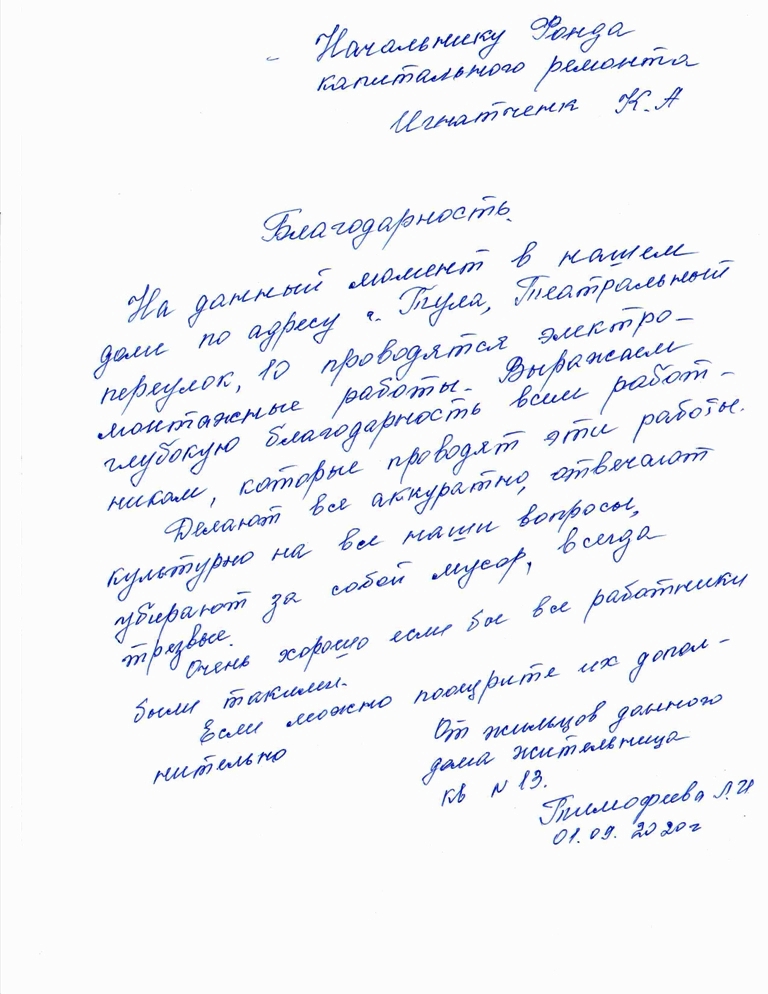 Начальнику Фонда
капитального ремонта
Игнатченк К.А
Благодарность.
На данный момент в нашем
доме по адресу г. Тула, Театральный
переулок, 10 проводятся электро-
монтажные работы. Выражаем
глубокую благодарность всем работ-
никам, которые проводят эти работы.
Делают все аккуратно, отвечают
культурно на все наши вопросы,
убирают за собой мусор, всегда
трезвые.
Очень хорошо если бы все работники
были такими.
Если можно поощрите их допол-
нительно
От жильцов данного
дома жительница
кв N 13.
Тимофеева Л.И
01.09.2020г